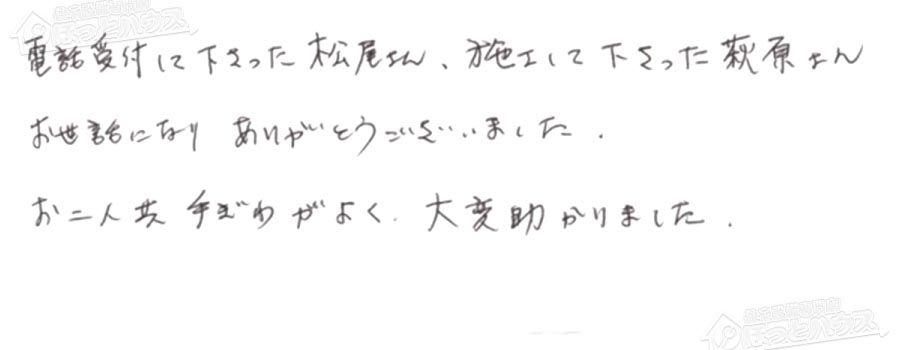 電話受付して下さった松尾さん、施工して下さった萩原さん
お世話になり ありがとうございました.
お二人共 手ぎわがよく. 大変助かりました.
ほっとハウス
ほっとハウス